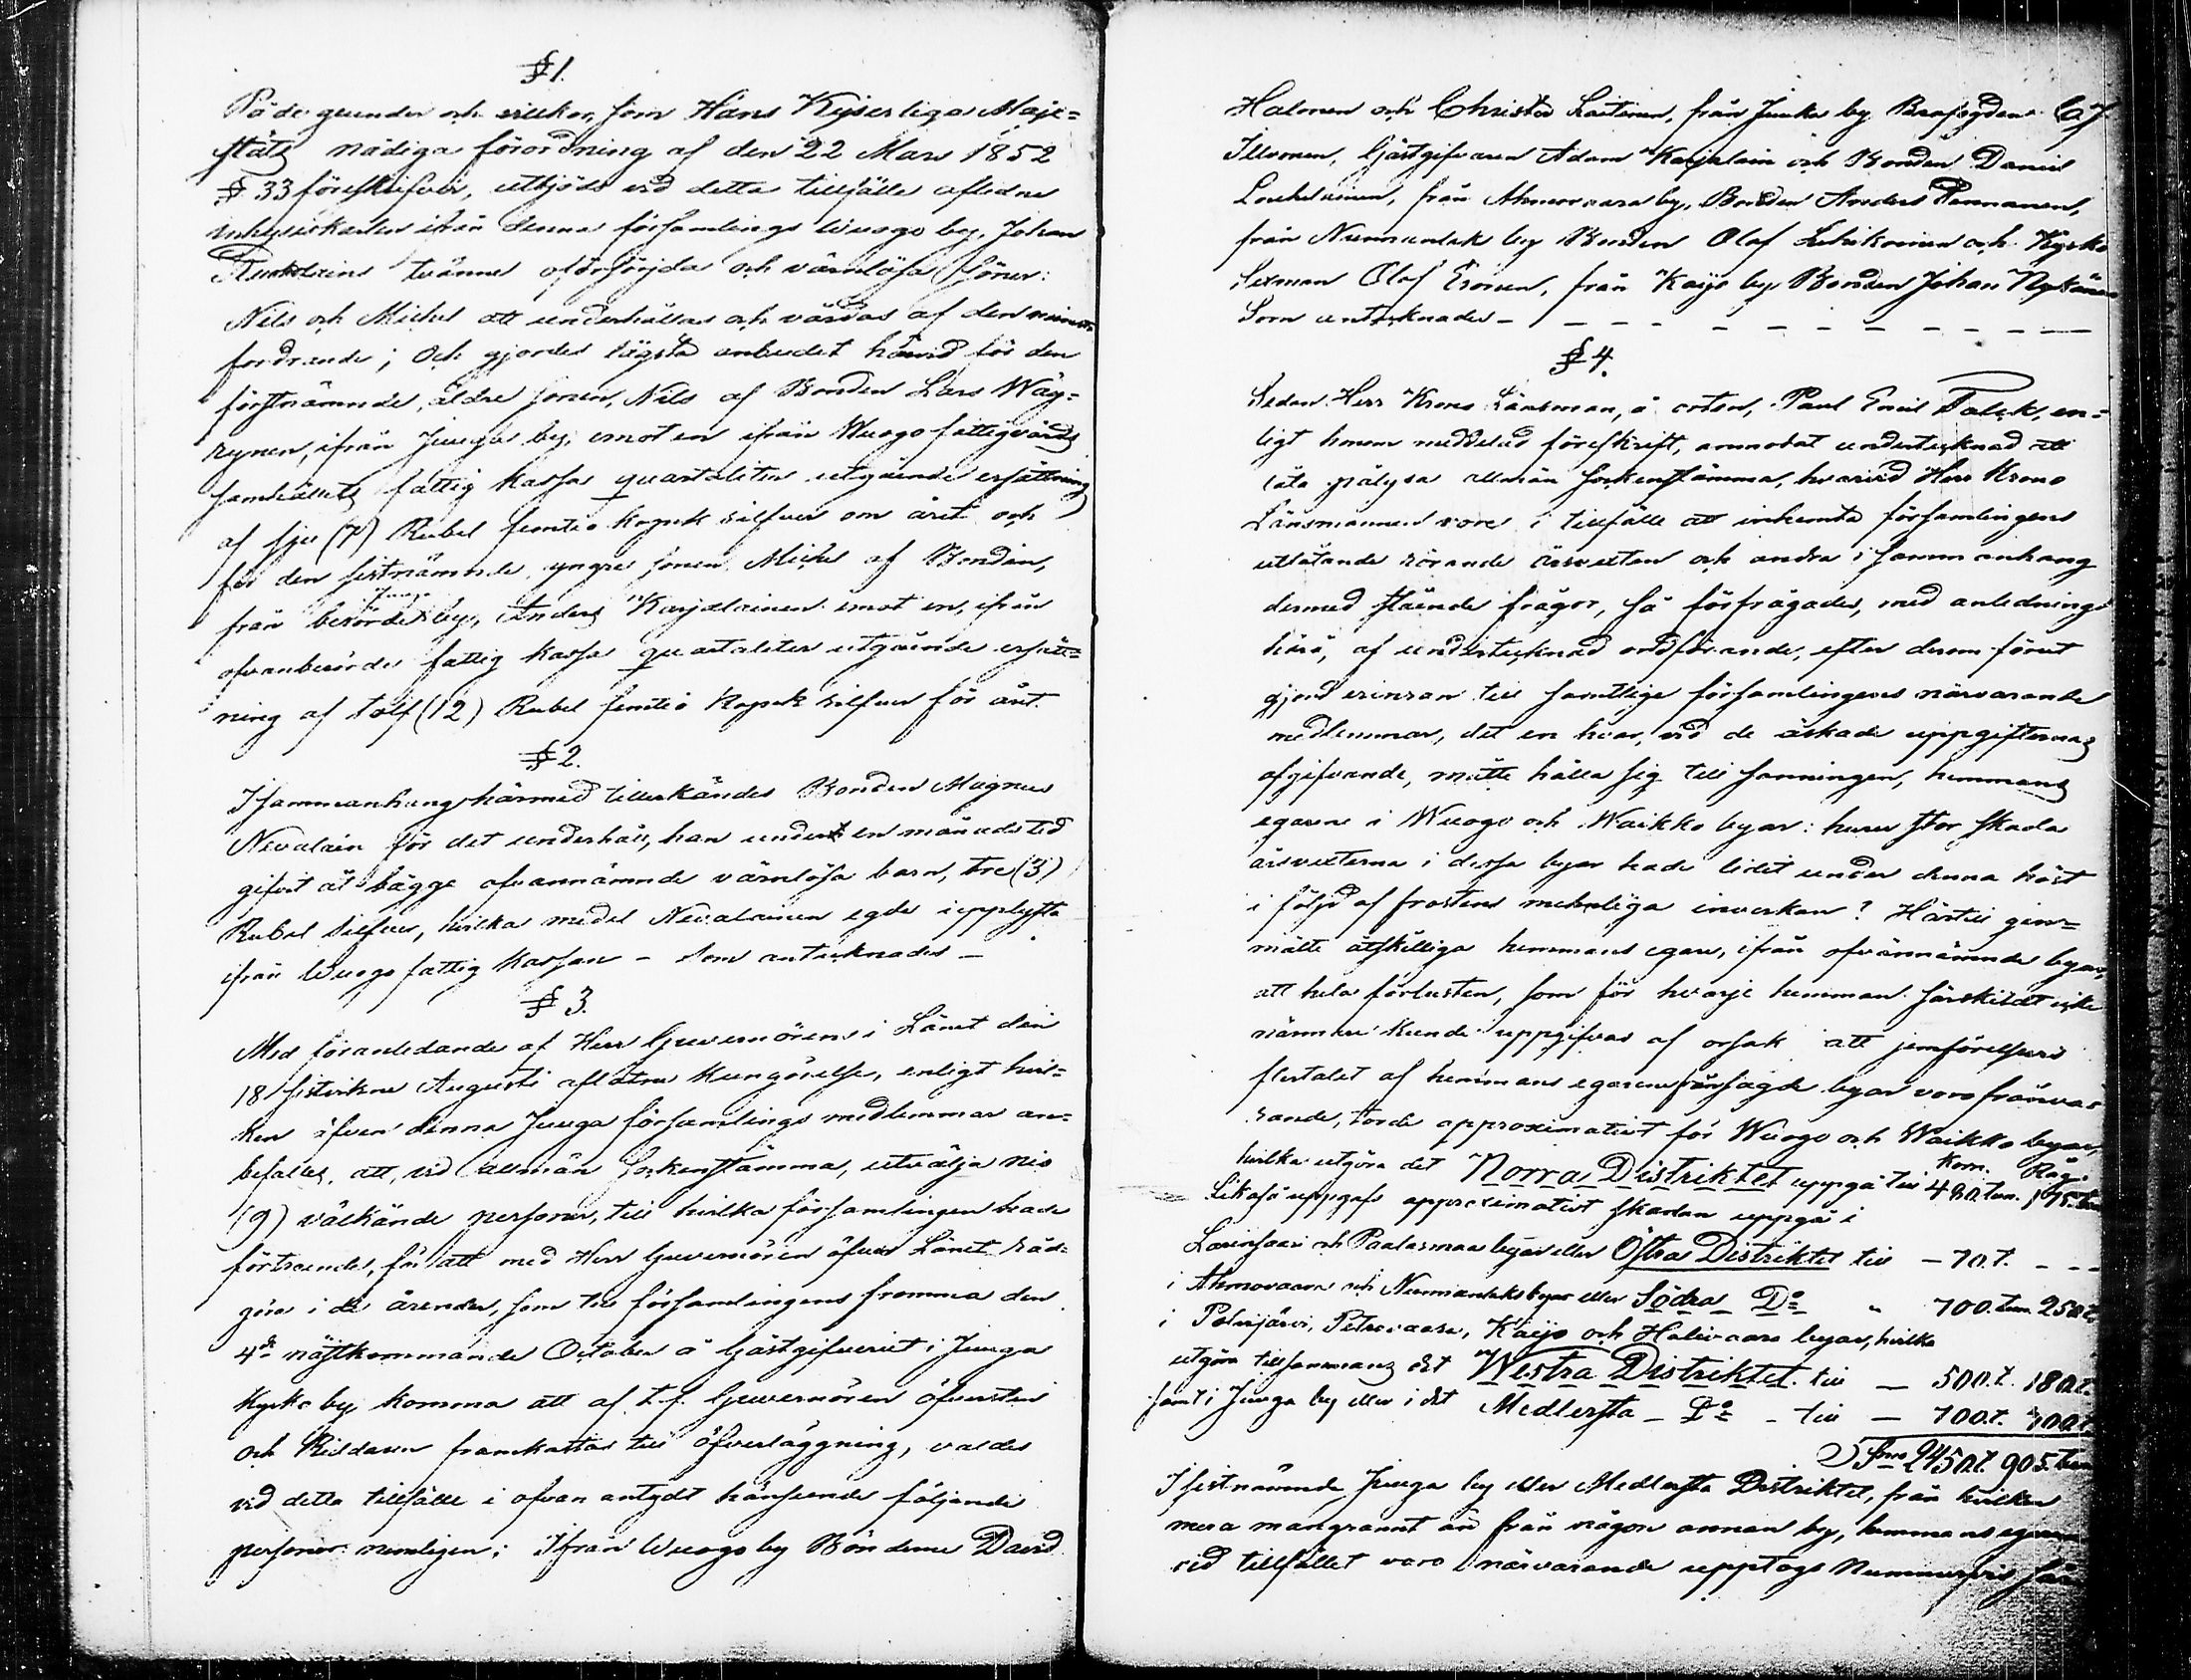 § 1.
På de grunder och villkor, som Hans Kejserliga Maje=
stäts nådiga förordning af den 22 Mars 1852
§ 33 föreskrifver, utbjöds vid detta tillfälle aflidne
inhysiskarlen ifrån denna församlings Wuogo by, Johan
tvänne oförsörjda och värnlösa söner:
Nils och Michel att underhållas och vårdas af den minst
fordrande; Och gjordes lägsta anbudet härvid för den
förstnämnde, äldre sonen, Nils af Bonden Lars Wäy=
rynen, ifrån Juuga by, emot en ifrån Wuogo fattigvårds
samhällets fattig kassa quartaliter utgående ersättning
af sju (7) Rubel femtio kopek silfver om året och
för den sistnämnde, yngre sonen Michel af Bonden,
från berörde Juuga by, Anders Karjalainen emot en, ifrån
ofvanberörde fattig kassa quartaliter utgående ersätt=
ning af tolf (12) Rubel femtio Kopek silfver för året.
§ 2.
I sammanhang härmed tillerkändes Bonden Magnus
Nevalain för det underhåll, han under en månads tid
gifvit åt bägge ofvannämnde värnlösa barn, tre (3)
Rubel silfver, hvilka medel Nevalainen egde upplyfta
ifrån Wuogo fattig kassan – Som antecknades –
§ 3.
Med föranledande af Herr Guvernörens i Länet den
18 sistvikne Augusti aflåtna Kungörelse, enligt hvil=
ken äfven denna Juuga församlings medlemmar an=
befalles, att, vid allmän sockenstämma, utvälja nio
(9) välkände personer, till hvilka församlingen hade
förtroende, för att med Herr Guvernören öfver Länet råd=
göra i de ärender, som till församlingens fromma den
4de nästkommande October å Gästgifveriet i Juuga
Kyrko by komma att af t.f. Guvernören öfversten
och Riddaren framkastas till öfverläggning, valdes
vid detta tillfälle i ofvan antydt hänseende följande
personer nemligen: Ifrån Wuogo by Bönderne David
Halonen och Christer Laitinen, från Juuka by 67
Illvonen, Gästgifvaren Adam Karjalain och Bonden Daniel
från Ahmovaara by, Bonden Anders Pennanen,
från Nunnanlaks by Bonden Olaf och Kyrko
Sexman Olof Eronen, från Kajo by Bonden Johan Nykänen
Som antecknades – – – – – – – – – – –
§ 4.
Sedan Herr Krono Länsman, å orten, Paul Emil Falck, en=
ligt honom meddelad föreskrift, anmodat undertecknad att
låta pålysa allmän sockenstämma, hvarvid Herr Krono
Länsmannen vore i tillfälle att inhemta församlingens
utlåtande rörande årsvexten och andra i sammanhang
dermed stående frågor, så förfrågades, med anledning
häraf, af undertecknad ordförande, efter derom förut
gjord erinran till samtlige församlingens närvarande
medlemmar, det en hvar, vid de äskade uppgifternas
afgifvande, måtte hålla sig till sanningen, hemmans
egarne i Wuogo och Waikko byar: huru stor skada
årsvexterna i dessa byar hade lidit under denna höst
i följd af frostens menliga inverkan? Härtill gen=
mälte åtskilliga hemmans egare, ifrån ofvannämnde byar,
att hela förlusten, som för hvarje hemman särskildt icke
närmare kunde uppgifvas af orsak att jemförelsevis
flertalet af hemmans egarene från sagde byar voro frånva=
rande, torde approximativt för Wuogo och Waikko byar,
Korn. Råg.
hvilka utgöra det Norra Distriktet uppgå till 480. tun. 175. tun
Likaså uppgafs approximativt skadan uppgå i
Larinsaari och Paalasmaa byar eller Östra Distriktet till – 70. t. – – –
i Ahmovaara och Nunnanlaks byar eller Södra Do " 700. tun. 250 t.
i Polvijärvi, Petrovaara, Kajo och Halivaara byar, hvilka
utgöra tillsammans det Westra Distriktet till – 500. t. 180. t.
samt i Juuga by eller i det Medlersta – Do – till – 700. t. 300. t.
S:ma 2450. t. 905. tun
I sistnämnde Juuga by eller Medlersta Distriktet, från hvilken
mera mangrannt än från någon annan by, hemmans egarne
vid tillfället voro närvarande upptogs Nummervis